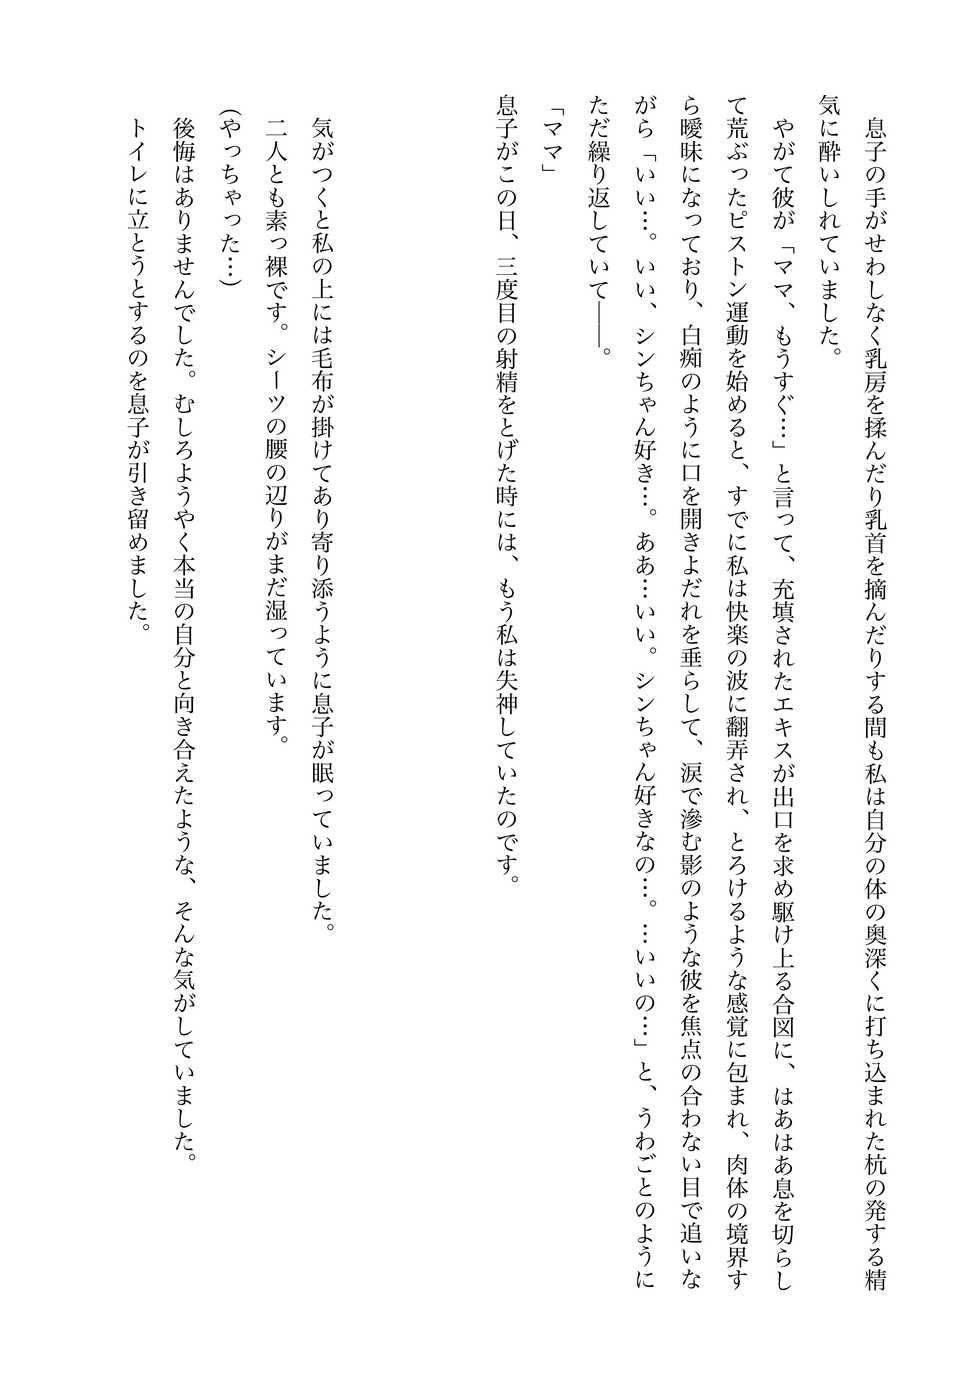 息子の手がせわしなく乳房を揉んだり乳首を摘んだりする間も私は自分の体の奥深くに打ち込まれた杭の発する精
気に酔いしれていました。
やがて彼が「ママ、もうすぐ…」と言って、充填されたエキスが出口を求め駆け上る合図に、はあはあ息を切らし
て荒ぶったピストン運動を始めると、すでに私は快楽の波に翻弄され、とろけるような感覚に包まれ、肉体の境界す
ら曖昧になっており、白痴のように口を開きよだれを垂らして、涙で滲む影のような彼を焦点の合わない目で追いな
がら「いい…。いい、シンちゃん好き…。ああ…いい。シンちゃん好きなの…。…いいの…」と、うわごとのように
ただ繰り返していて――。
「ママ」
息子がこの日、三度目の射精をとげた時には、もう私は失神していたのです。
気がつくと私の上には毛布が掛けてあり寄り添うように息子が眠っていました。
二人とも素っ裸です。シーツの腰の辺りがまだ湿っています。
(やっちゃった…)
後悔はありませんでした。むしろようやく本当の自分と向き合えたような、そんな気がしていました。
トイレに立とうとするのを息子が引き留めました。